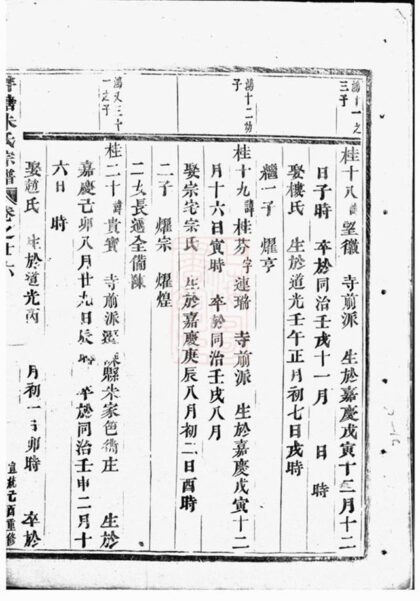 湯十一之
三子
桂十八諱望徽 寺前派 生於嘉慶戊寅十二月十二
日子時 卒於同治壬戌十一月 日 時
娶樓氏 生於道光壬午正月初七日亥時
繼一子 燿亨
湯十二幼
子
桂十九諱桂芬字連璐 寺前派 生於嘉慶戊寅十二
月十六日寅時 卒於同治壬戌八月
娶宗宅宗氏 生於嘉慶庚辰八月初二日酉時
二子 燿宗 燿煌
二女長適全備陳
湯又三十
一之子
桂二十諱貴寶 寺前派 縣朱家 莊 生於
嘉慶己卯八月廿九日辰時 卒於同治壬申二月十
六日 時
娶趙氏 生於道光丙 月初一日卯時 卒於
朱氏宗譜 卷之廿六
宣統己酉重修